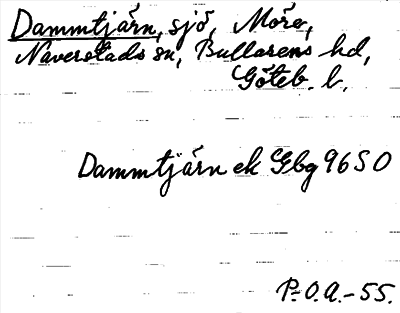 Dammtjärn, sjö, Möre,
Naverstads sn, Bullarens hd,
Göteb. l.
Dammtjärn ek Gbg 96 S O
P.O.A.-55.